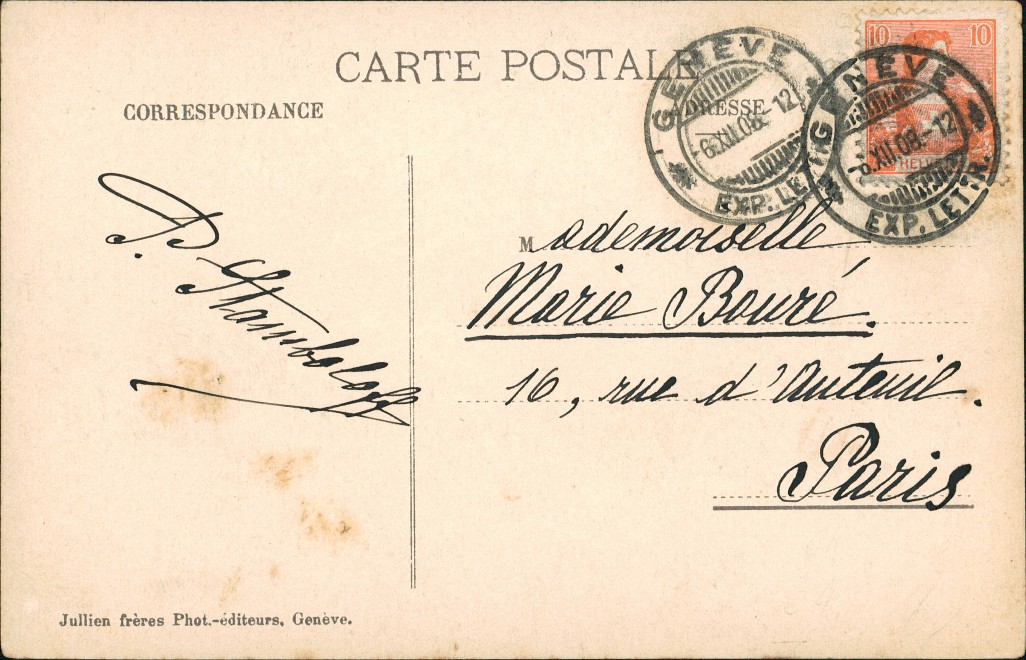 CARTE POSTALE
CORRESPONDANCE
ADRESSE
GENÈVE
6.XII.08.-12
EXP. LETTR.
GENÈVE
6.XII.08.-12
EXP. LETTR.
10 10
HELVETIA
P. Stamboloff
Mademoiselle
Marie Bouré.
16, rue d'Auteuil.
Paris
Jullien frères Phot.-éditeurs, Genève.